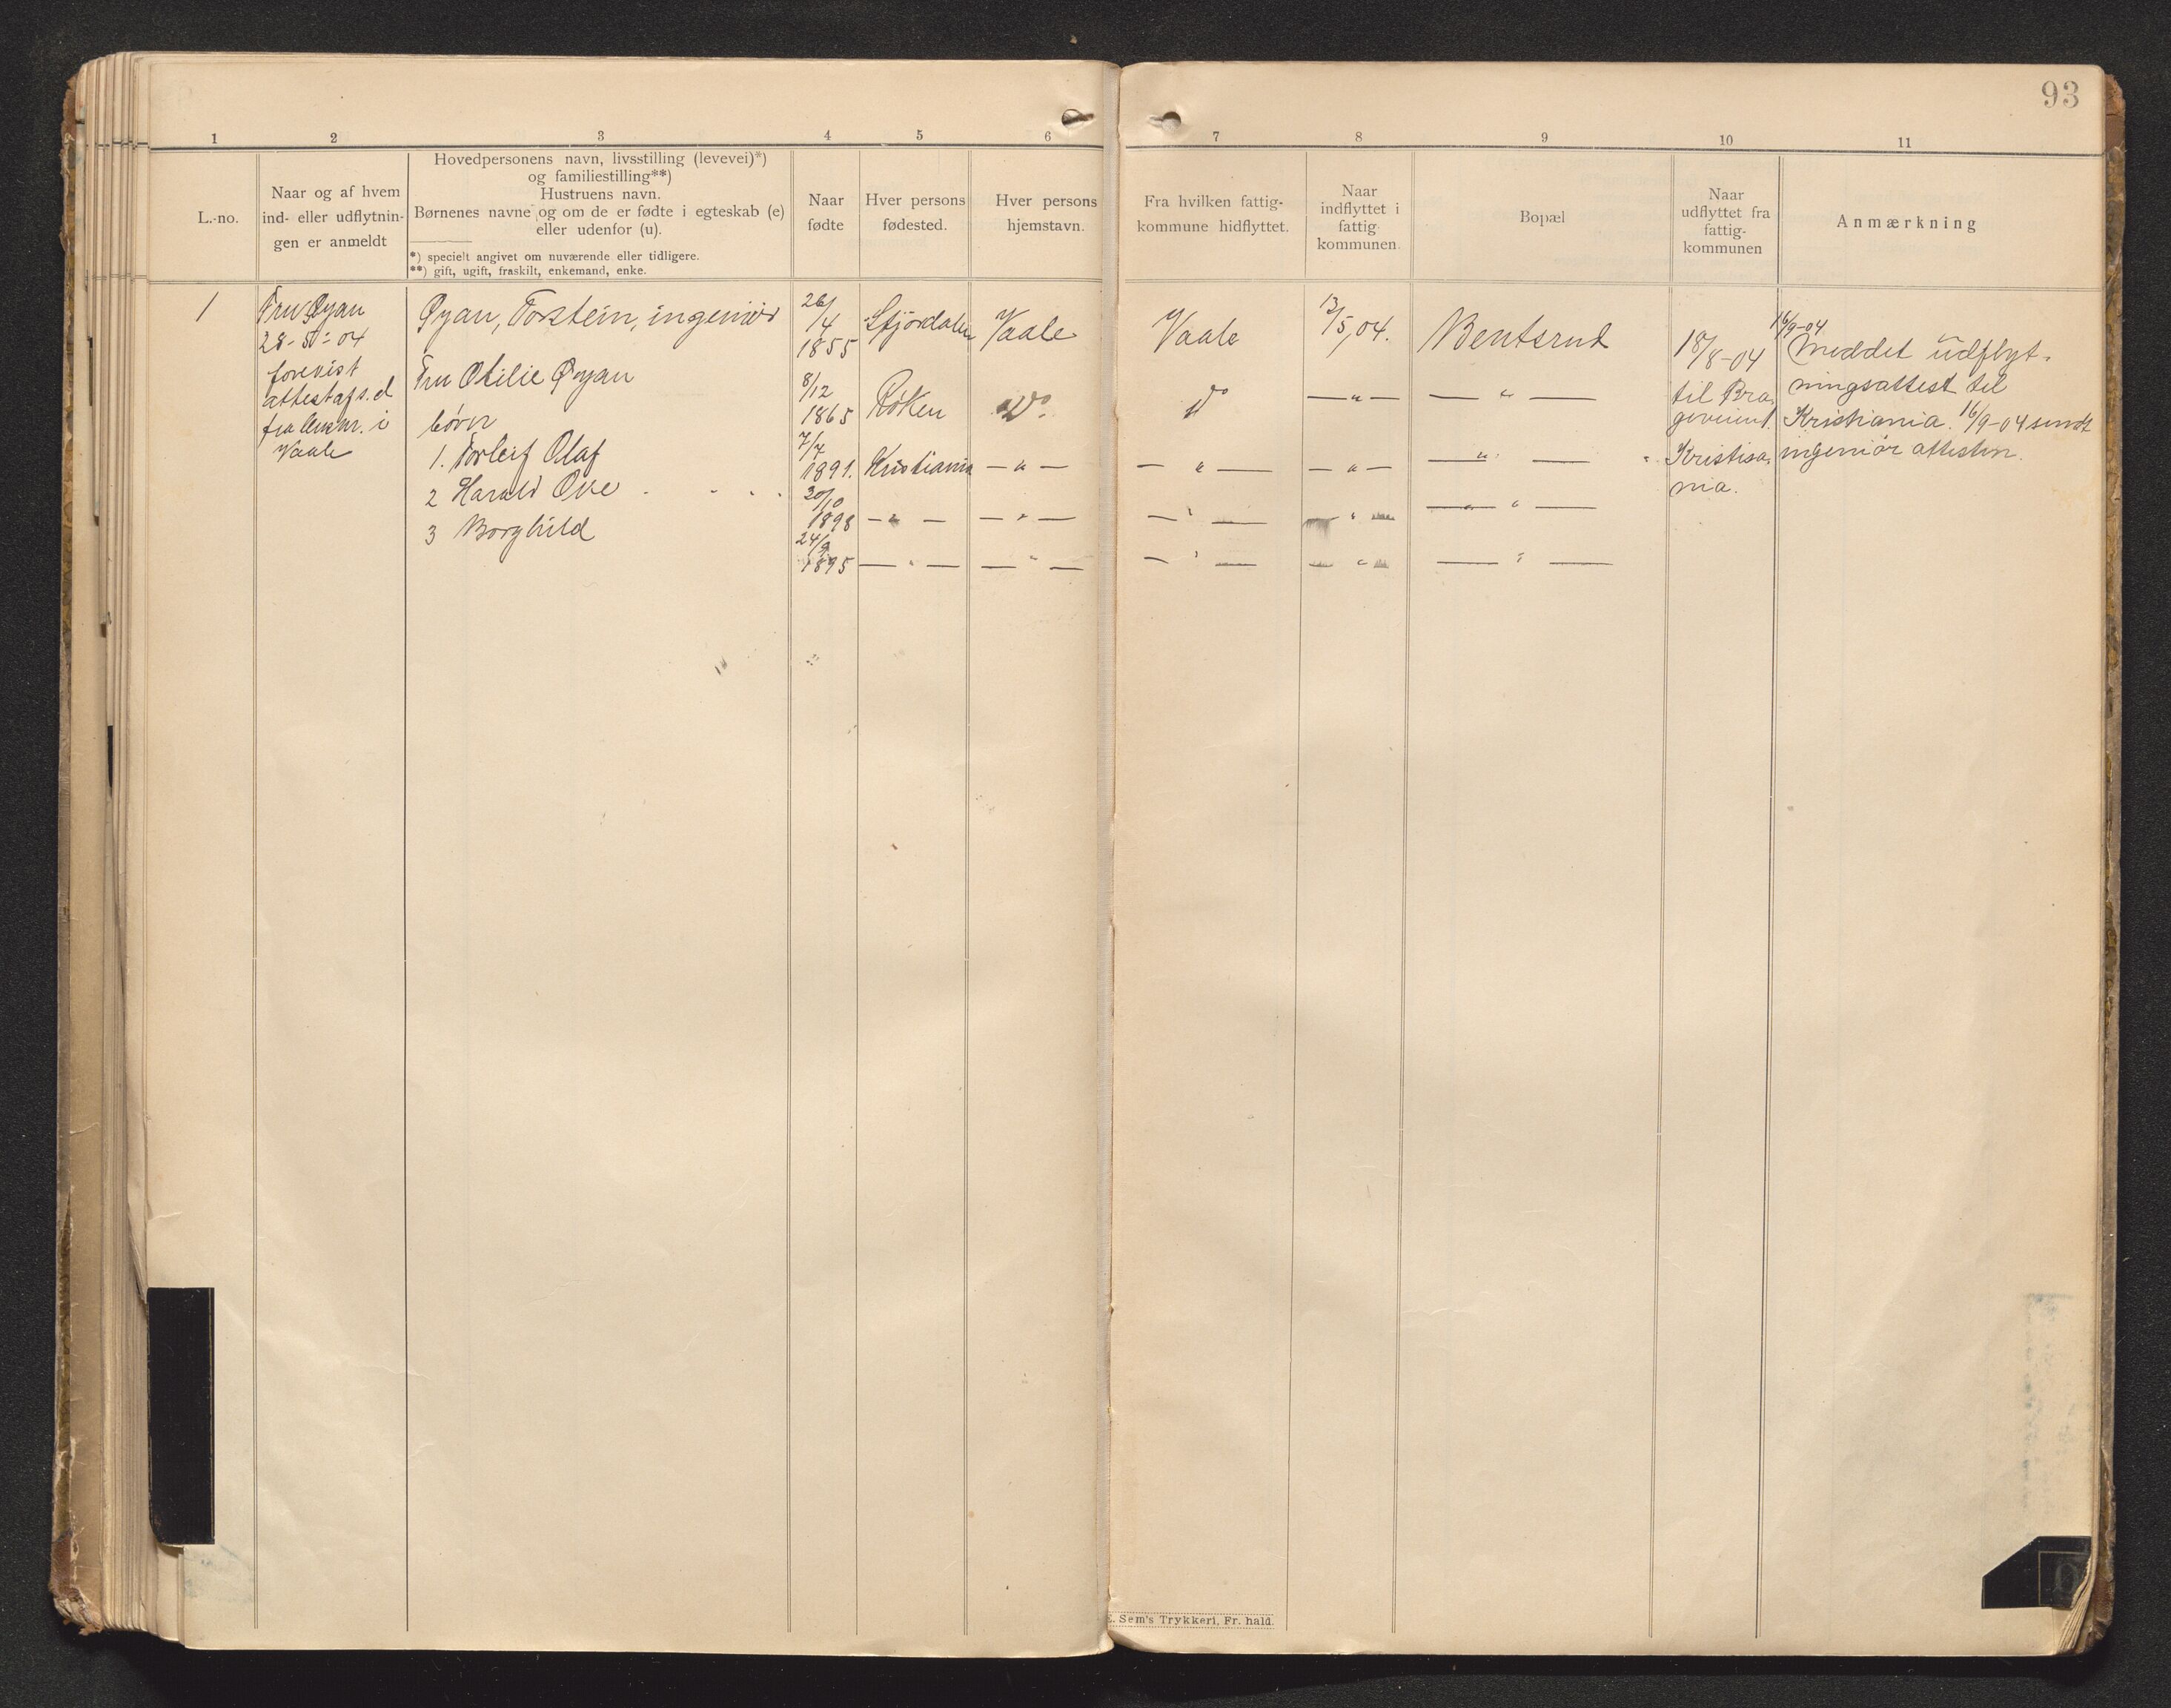 93
1 2 3 4 5 6 7 8 9 10 11
L.-no.
Naar og af hvem
ind- eller udflytnin-
gen er anmeldt
Hovedpersonens navn, livsstilling (levevei)*)
og familiestilling**)
Hustruens navn.
Børnenes navne og om de er fødte i egteskab (e)
eller udenfor (u).
*) specielt angivet om nuværende eller tidligere.
**) gift, ugift, fraskilt, enkemand, enke.
Naar
fødte
Hver persons
fødested.
Hver persons
hjemstavn.
Fra hvilken fattig-
kommune hidflyttet.
Naar
indflyttet i
fattig
kommunen.
Bopæl
Naar
udflyttet fra
fattig-
kommunen
Anmærkning
1
Fru Øyan
28-5-04
forevist
fra i
Vaale
Øyan, Torstein, ingeniør
Fru Otilie Øyan
børn
1. Torleif Olaf
2 Harald Ove
3 Borghild
26/4
1855
8/12
1865
7/7
1891.
20/10
1898
24/9
1895
Stjørdalen
Røken
Kristiania
— " —
— " —
Vaale
Do.
— " —
— " —
— " —
Vaale
Do
— " —
— " —
— " —
13/5 04.
— " —
— " —
— " —
— " —
Bentsrud
— " —
— " —
— " —
— " —
18/8-04
til Bra
geveien1.
Kristia
nia.
16/9-04
Meddelt udflyt-
ningsattest til
Kristiania. 16/9-04 sendt
ingeniør attesten.
E. Sem's Trykkeri, Fr. hald.